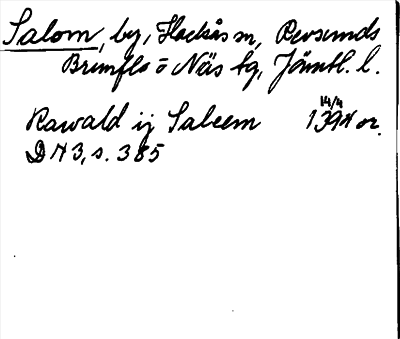 Salom, by, Hackås sn, Revsunds
Brunflo o Näs tg, Jämtl. l.
14/4
Rawald ij Saleem 1394 or.
DN 3, s. 385